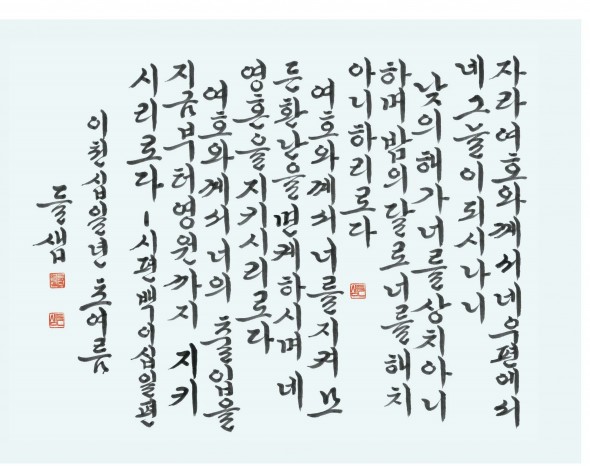 자라 여호와께서 네 우편에서
네 그늘이 되시나니
낮의 해가 너를 상치 아니
하며 밤의 달로 너를 해치
아니하리로다
여호와께서 너를 지켜 모
든 환난을 면케 하시며 네
영혼을 지키시리로다
여호와께서 너의 출입을
지금부터 영원까지 지키
시리로다 - 시편 백이십일편
이천십일년 초여름
들샘